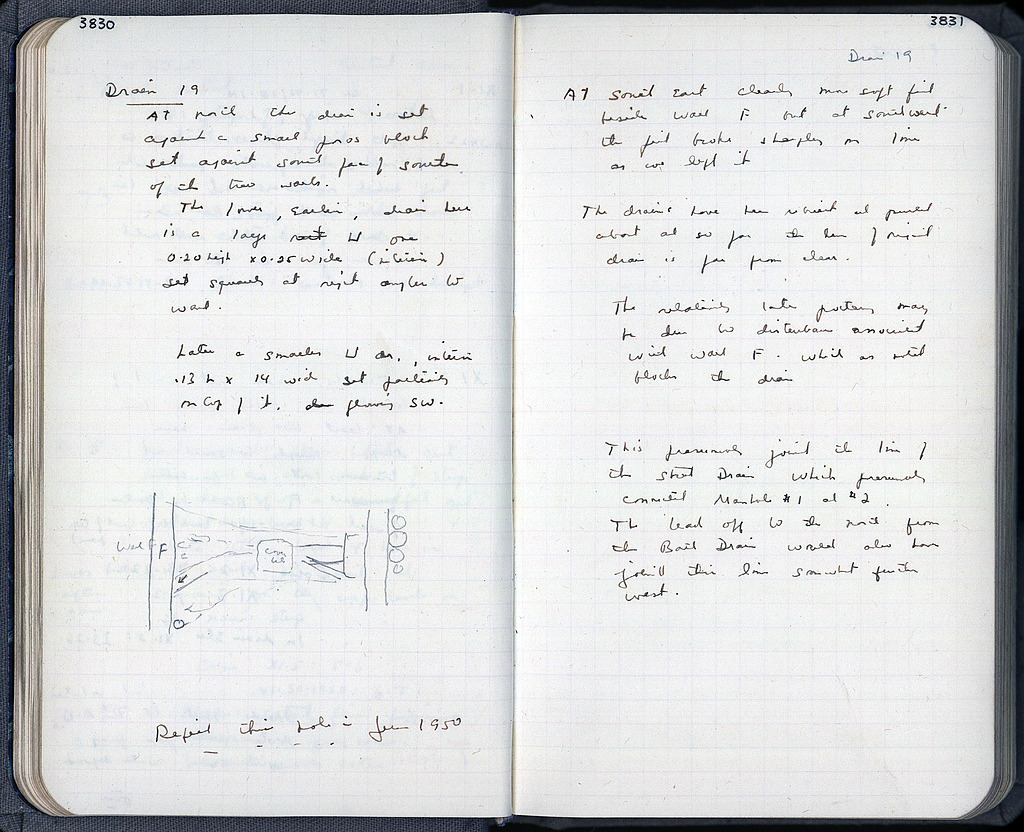 3830
Drain 19
At north the drain is set
against a small poros block
set against south face of southern
of the two walls.
The lower, earlier, drain here
is a large U one
0.20 high x 0.25 wide (interior)
set squarely at right angles to
wall.
Later a smaller U dr., interior
.13 h x 14 wide set partially
on top of it, flowing SW.
Wall F F
Cow
Well
Refill this hole in June 1950
3831
Drain 19
At south east clearly more soft fill
beside wall F but at southwest
the fill broke sharply on line
as we left it
The drains have been at
about at so far the line of
drain is far from clear.
The relatively late pottery may
be due to disturbance associated
with wall F. which as noted
blocks the drain
This presumably joined the line of
the street Drain which presumably
connected Manhole #1 at #2.
The lead off to the north from
the Bath Drain would also have
joined this line somewhat further
west.